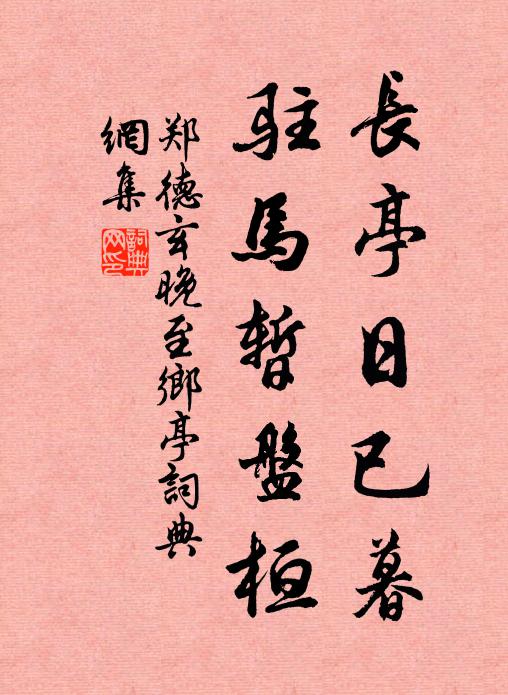 長亭日已暮
駐馬暫盤桓
郑德玄晚至鄉亭詞典
網集
詞典網印